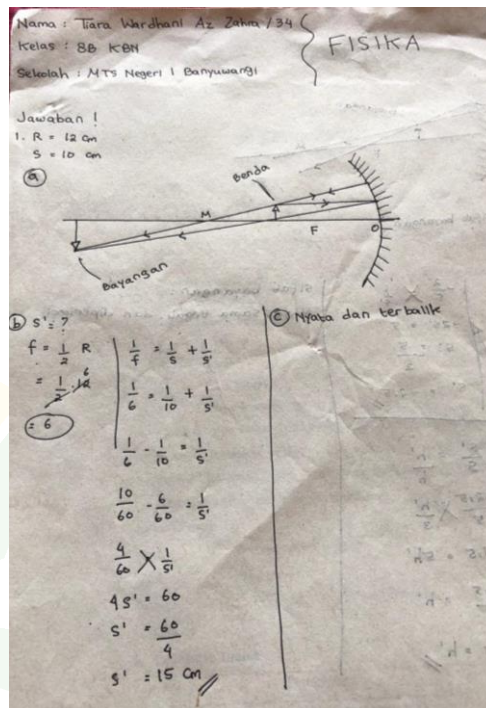 Nama : Tiara Wardhani Az Zahra / 34
Kelas : 8B KBN
Sekolah : MTS Negeri 1 Banyuwangi
FISIKA
Jawaban !
1. R = 12 cm
S = 10 cm
a
Benda
M
F
O
Bayangan
b S' = ?
f = 1/2 R
= 1/2 . 12 6
= 6
1/f = 1/s + 1/s'
1/6 = 1/10 + 1/s'
1/6 - 1/10 = 1/s'
10/60 - 6/60 = 1/s'
4/60 X 1/s'
4s' = 60
s' = 60/4
s' = 15 cm //
c Nyata dan terbalik